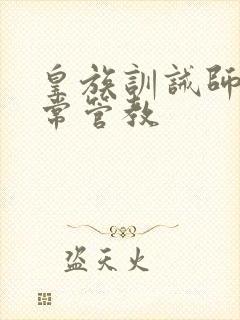 皇族訓誡師
常管教
盗天火